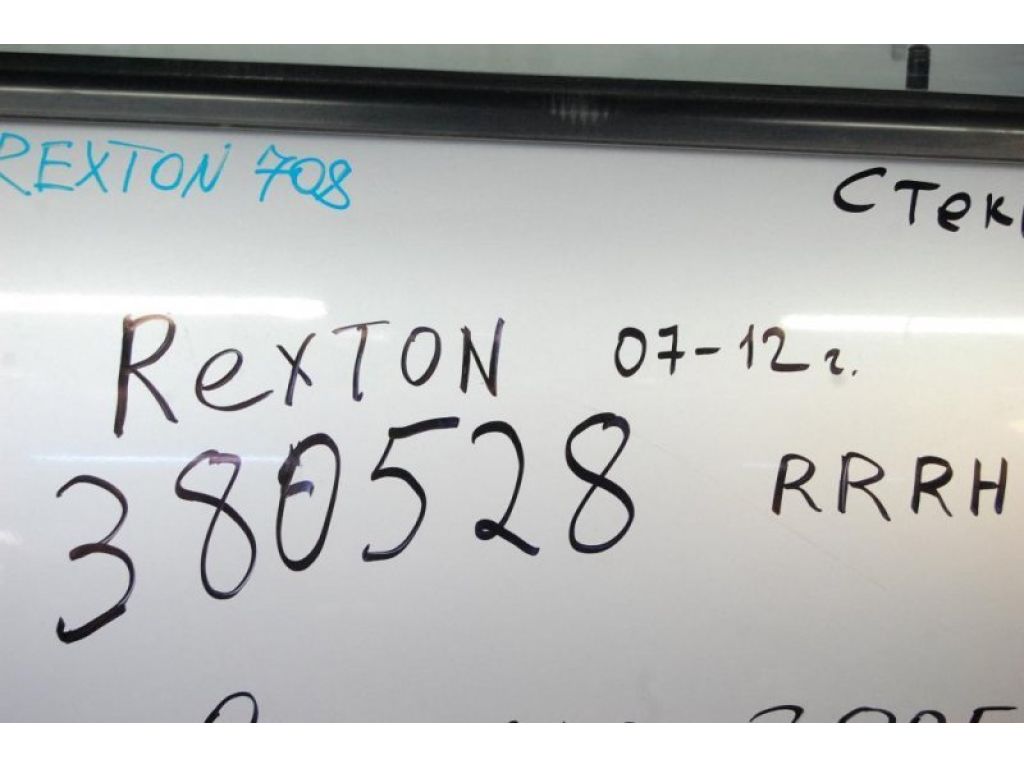 REXTON 708
Rexton 07-12 г.
380528 RRRH